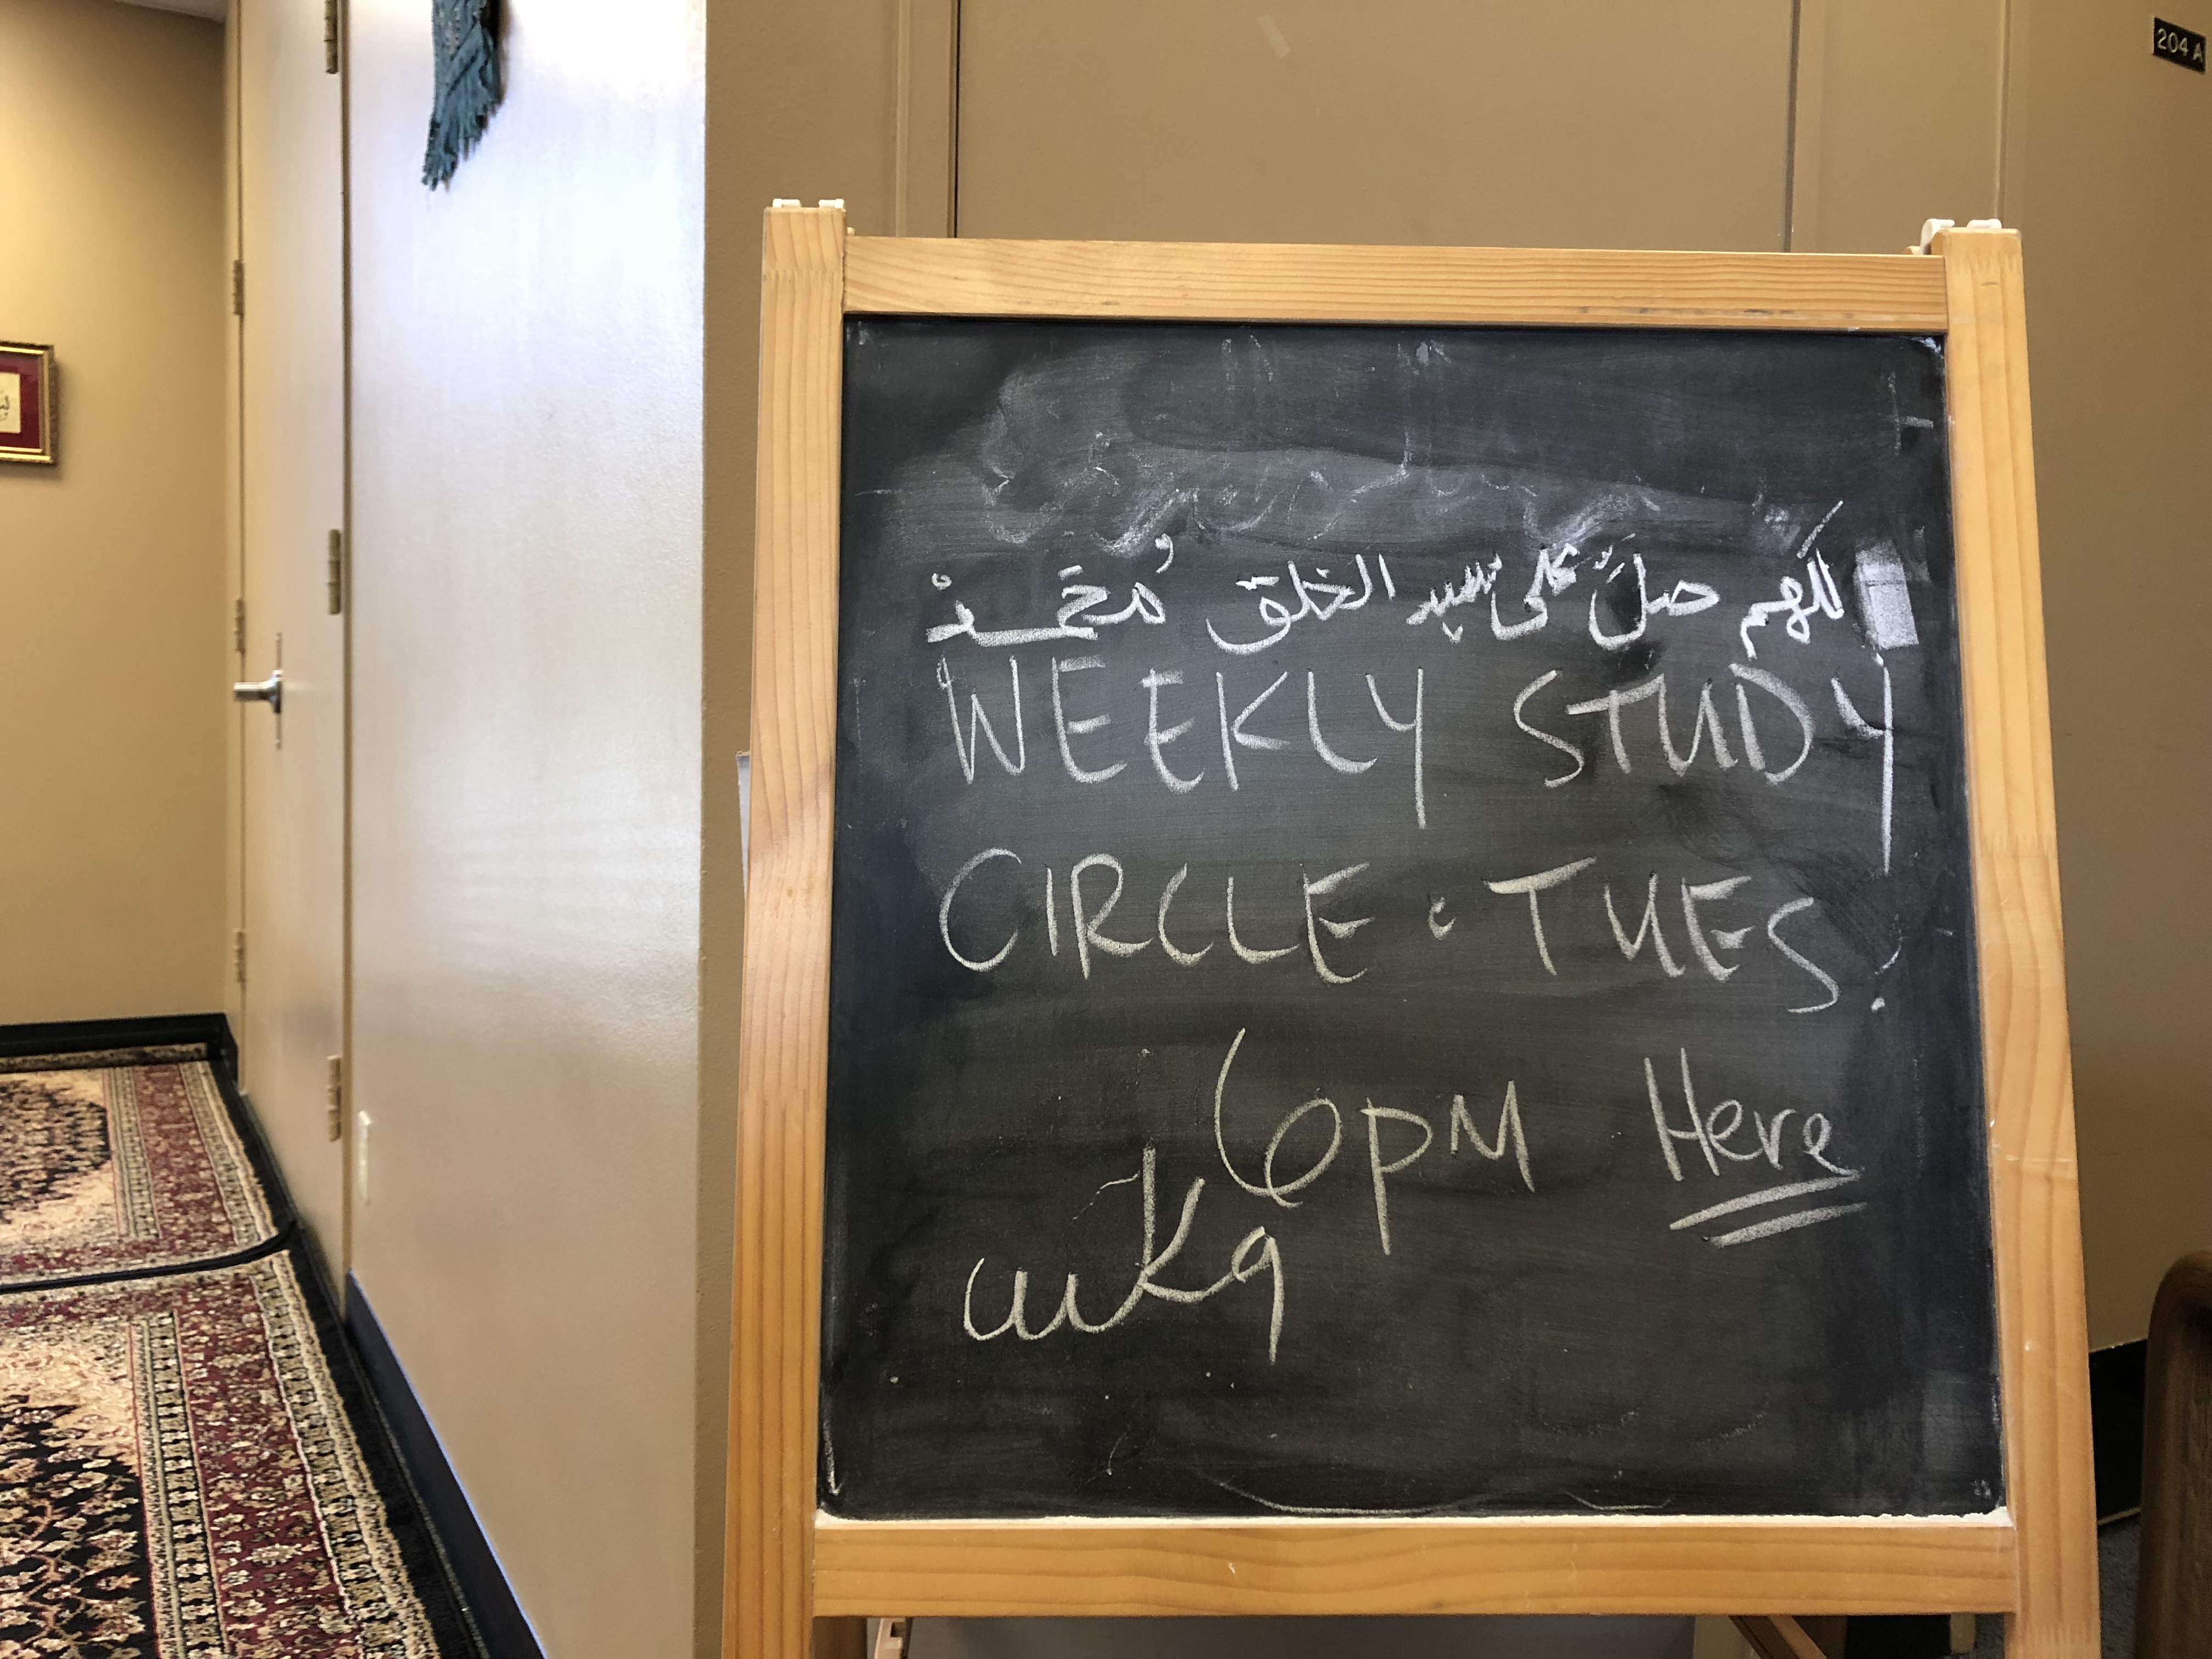 اللهم صلَّ على سيد الخلق مُحَمَّدْ
WEEKLY STUDY
CIRCLE : TUES.
6PM Here
204 A